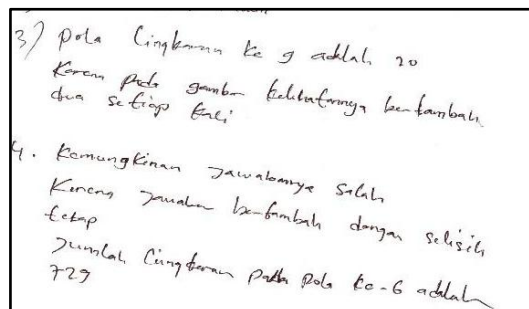 3) pola lingkaran ke 9 adalah 20
Karena pada gambar kelihatannya bertambah
dua setiap kali
4. Kemungkinan jawabannya salah
Karena jawaban bertambah dengan selisih
tetap
Jumlah lingkaran pada pola ke-6 adalah
729